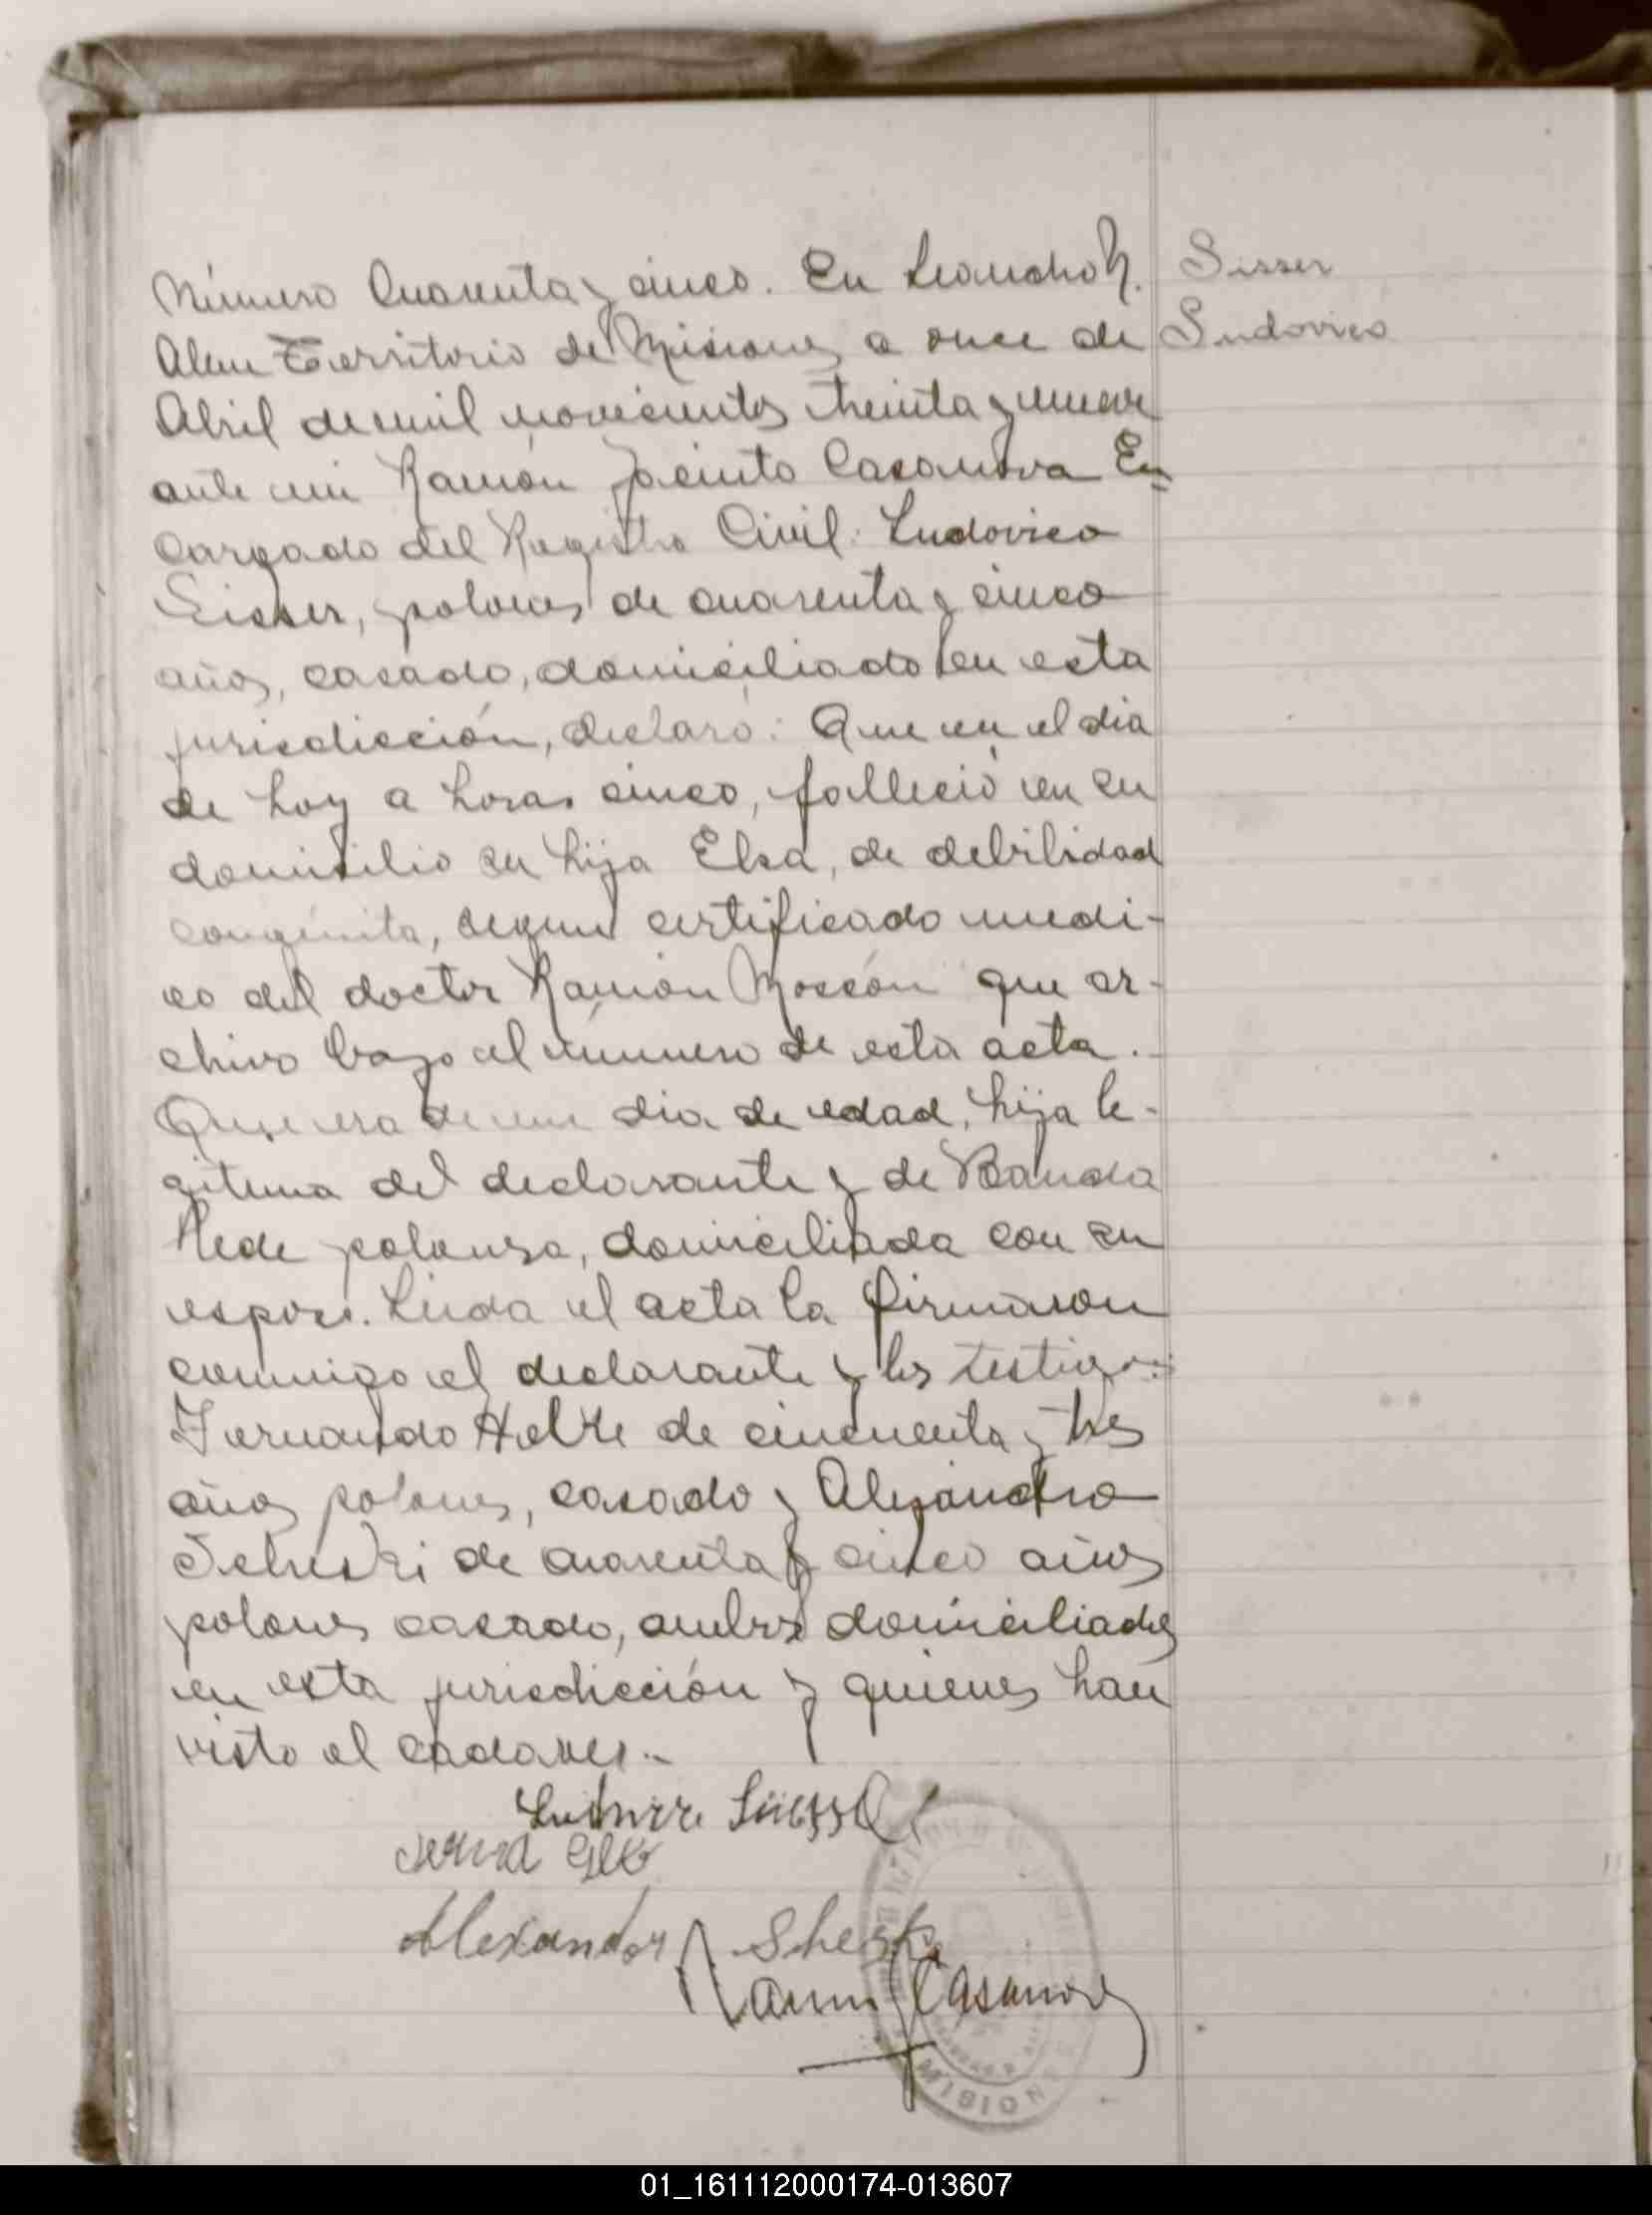 Número Cuarenta y cinco. En Leandro N.
Alem Territorio de Misiones a once de
Abril de mil novecientos treinta y nueve
ante mi Ramón Jacinto Casanova En=
cargado del Registro Civil: Ludovico
Sisser, polones de cuarenta y cinco
años, casado, domiciliado en esta
jurisdicción, declaró: Que en el dia
de hoy a horas cinco, falleció en su
domicilio su hija Elsa, de debilidad
congénita, segun certificado medi-
co del doctor Ramón Moscón que ar-
chivo bajo el número de esta acta.
Que era de un dia de edad, hija le-
gitima del declarante y de Banda
polonesa, domiciliada con su
esposo. Leida el acta la firmaron
conmigo el declarante y los testigos:
Fernando de cincuenta y tres
años polones, casado y Alejandro
de cuarenta y cinco años
polones casado, ambos domiciliados
en esta jurisdicción y quienes han
visto el cadaver.-
Sisser
Ludovico
Alexander
Ramón J Casanova
MISIONES
01_161112000174-013607